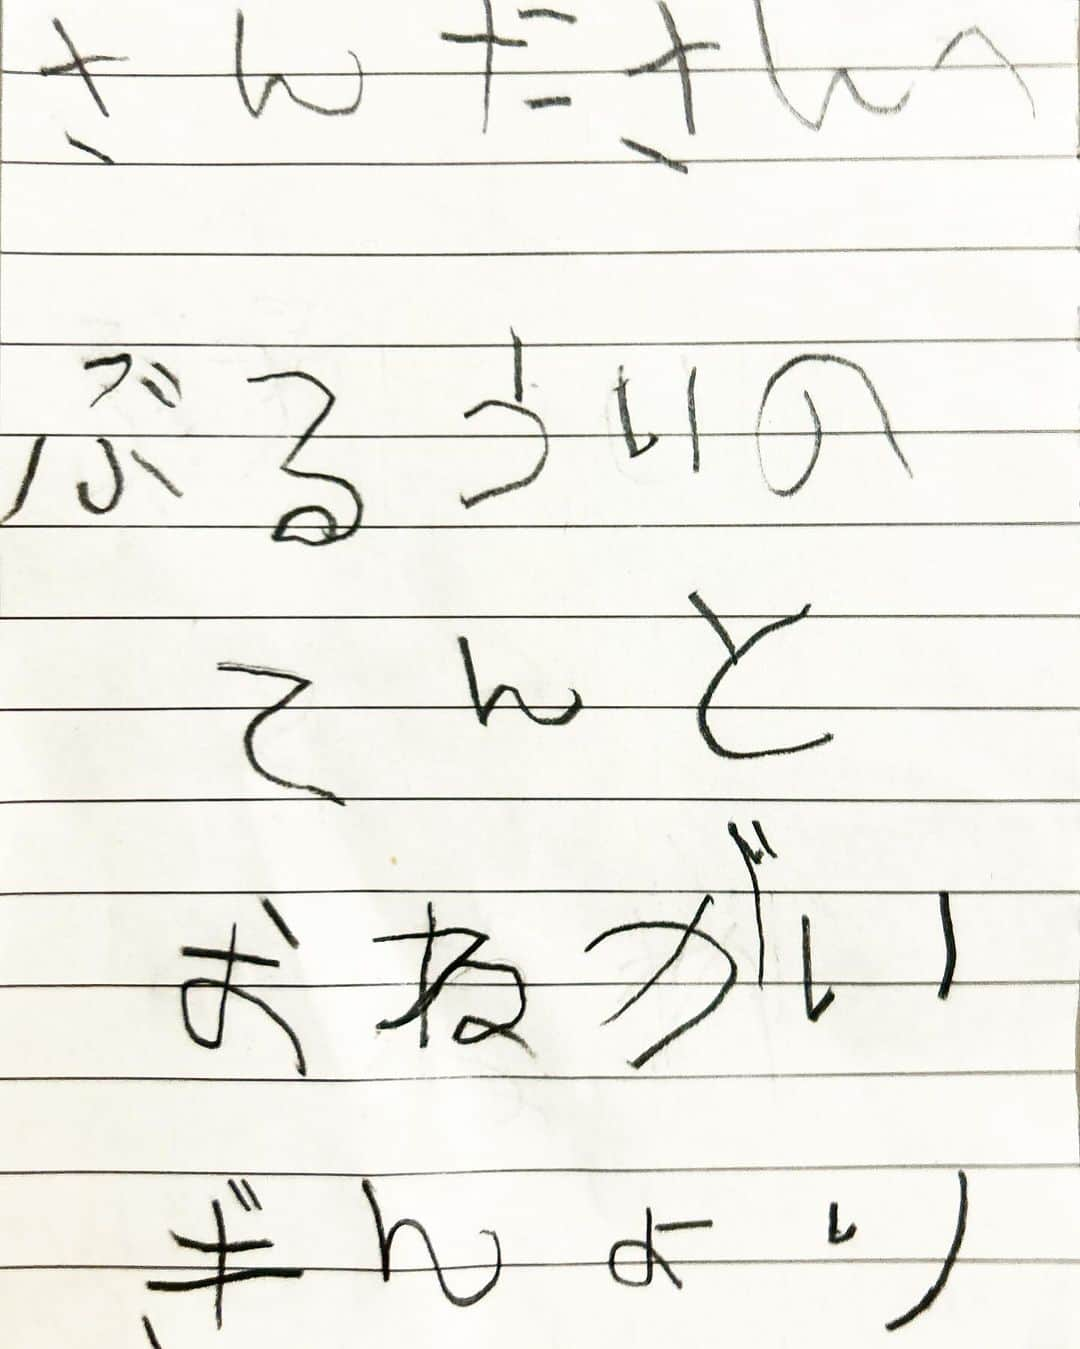 さんたさんへ
ぶるういの
てんと
おねがい
ぎんより